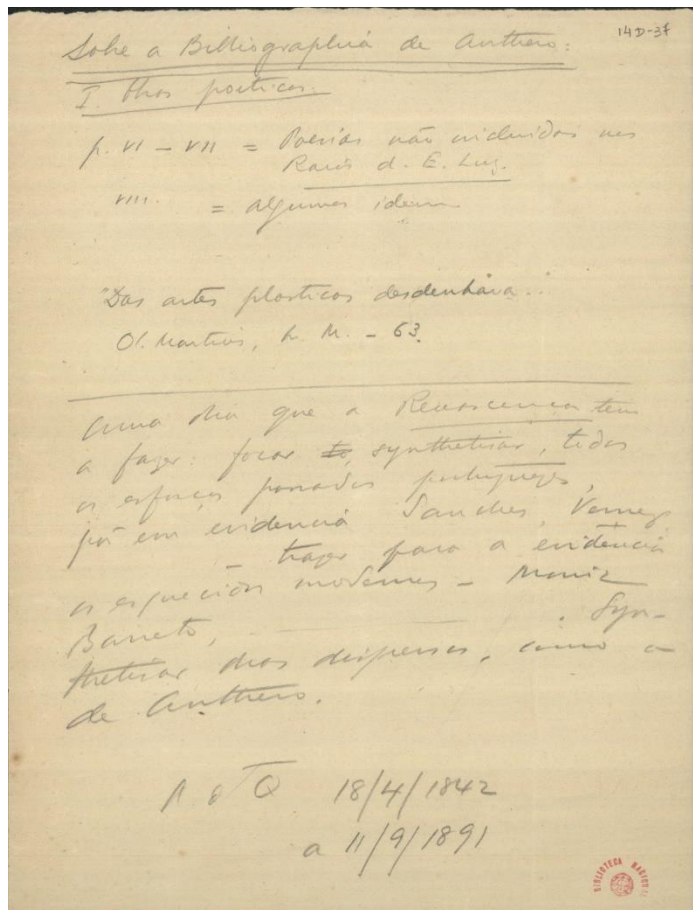 14D-37
Sobre a Bibliographia de Anthero:
I. Obras poeticas.
p. VI – VII = Poesias não incluidas nos
Raios d. E. Luz.
VIII. = algumas idem
"Das artes plasticas desdenhava..
Ol. Martins, L. M. – 63.
uma obra que a Renascença tem
a fazer: focar, synthetisar, todos
os esforços passados portuguezes,
pôr em evidencia Sanches, Verney,
— trazer para a evidencia
os esquecidos modernos – Moniz
Barreto, . Syn-
thetisar obras dispersas, como a
de Anthero.
A d Q 18/4/1842
a 11/9/1891
BIBLIOTECA NACIONAL